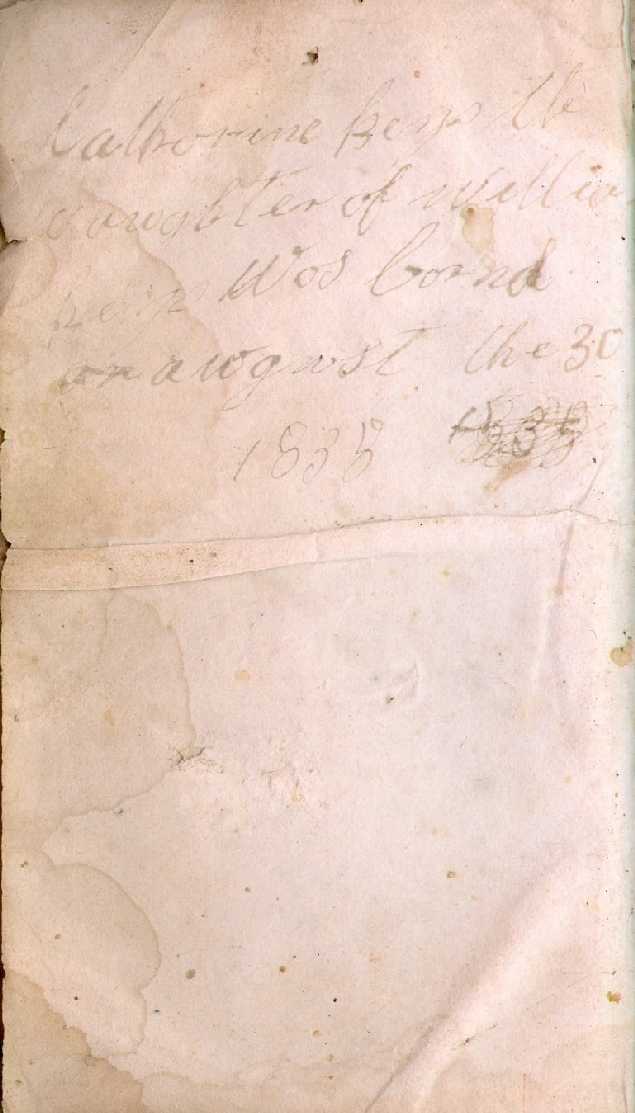 Cathorine keys the
dawghter of willia
keys wos bornd
on awgwst the 30
1838